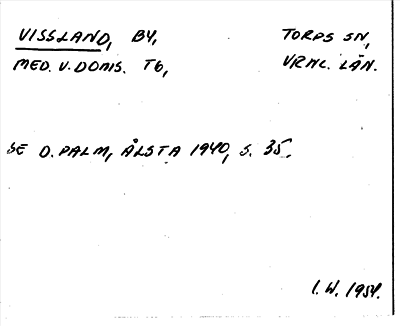 VISSLAND, BY, TORPS SN,
MED. V. DOMS. TG, VRNL. LÄN.
SE D. PALM, ÅLSTA 1940, S. 35.
I. W. 1954.